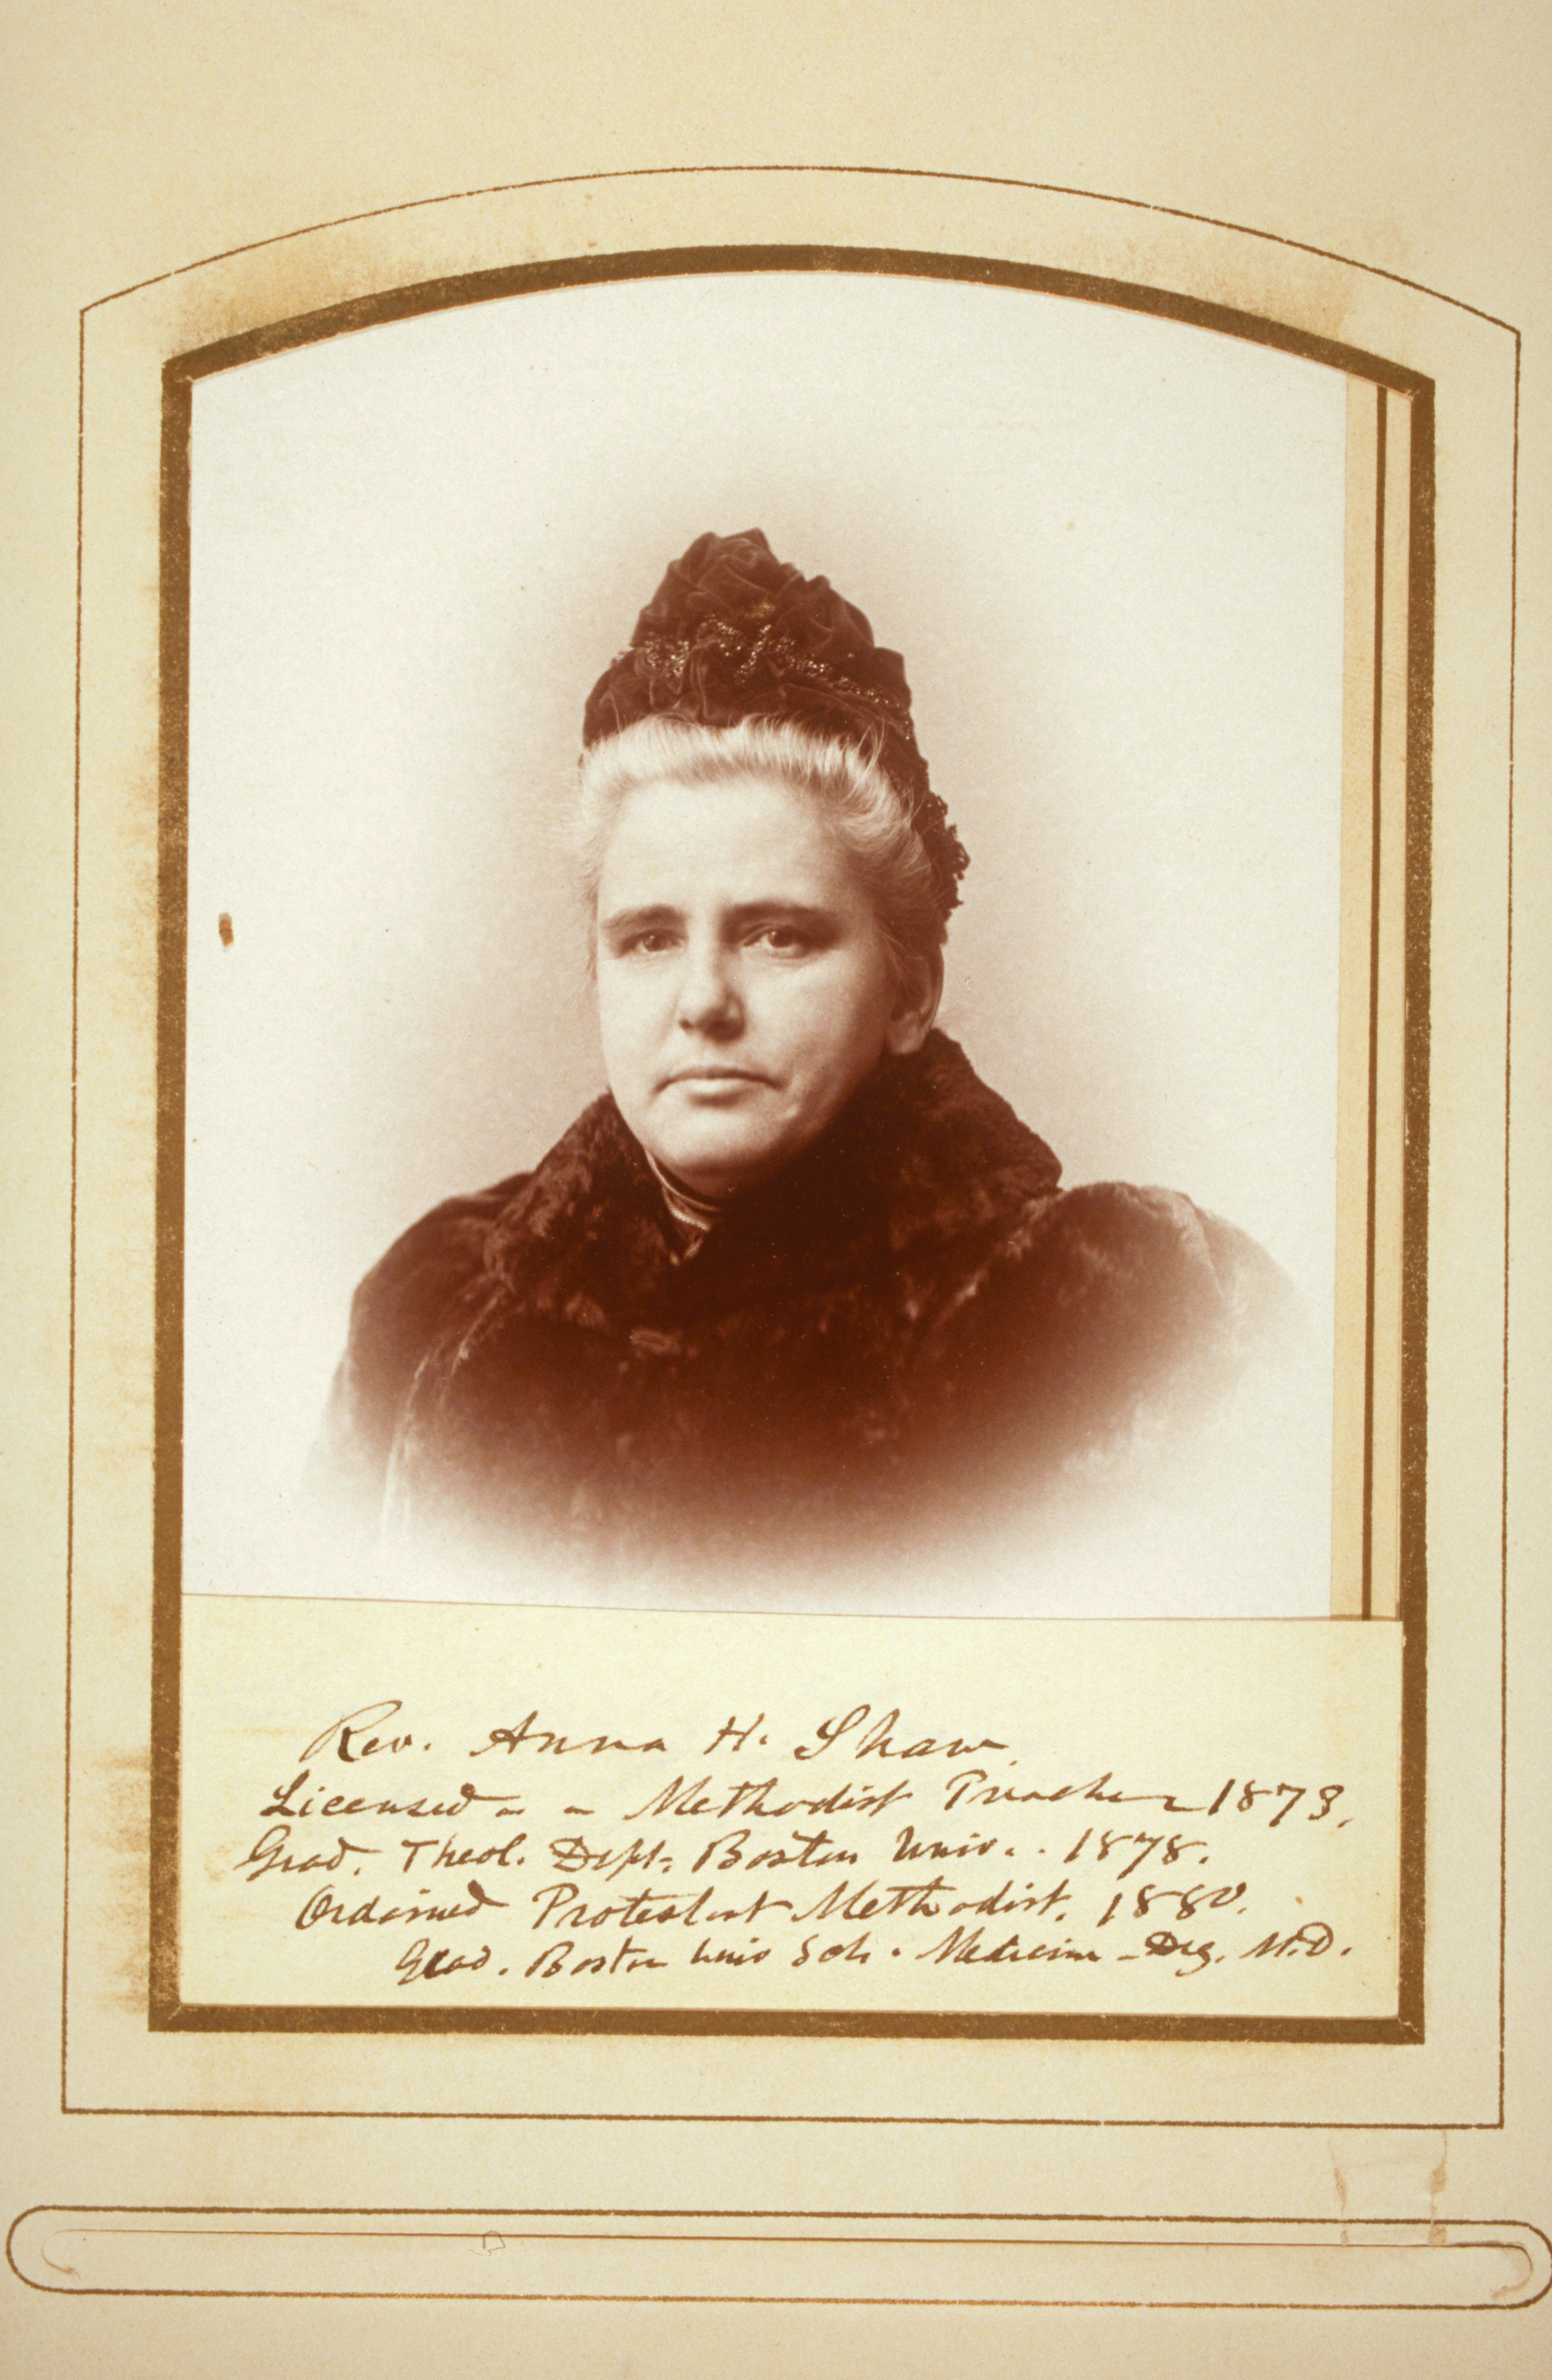 Rev. Anna H. Shaw
Licensed as a Methodist Preacher 1873.
Grad. Theol. Dept. Boston Univ. 1878.
Ordained Protestant Methodist. 1880.
Grad. Boston Univ Sch. Medicine - Deg. M.D.